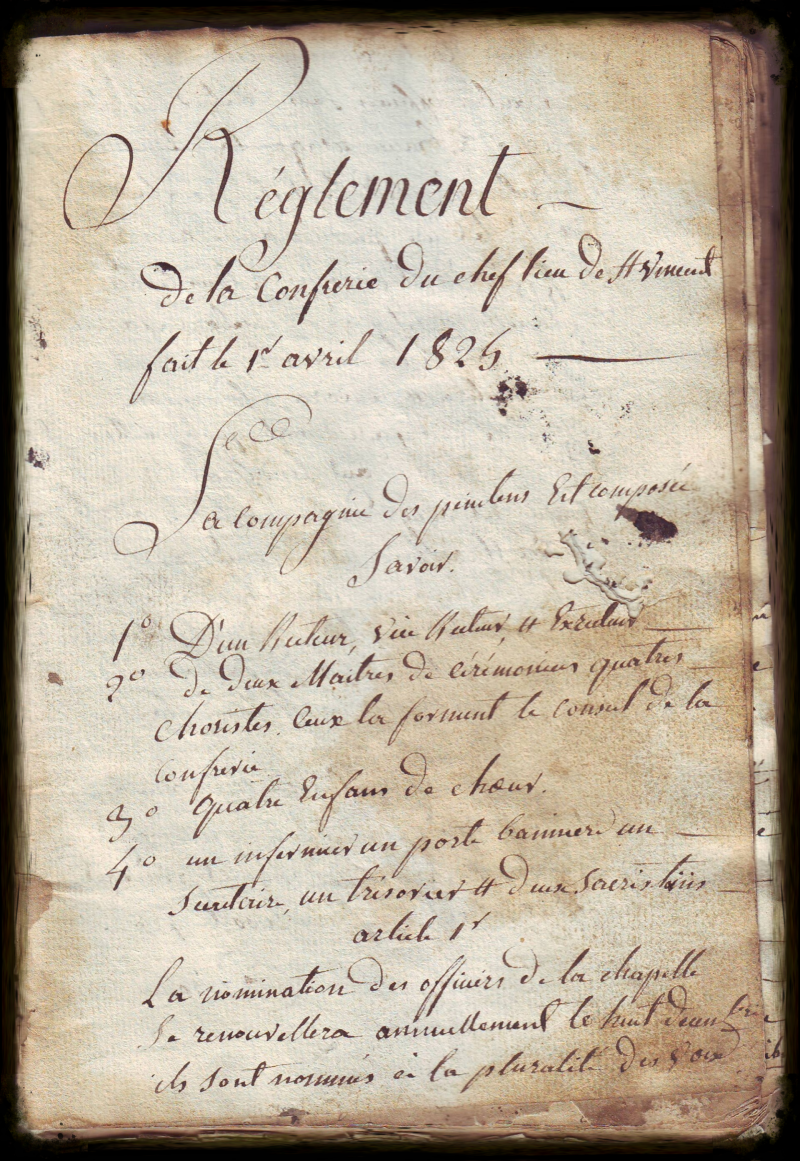 Réglement —
De la Confrerie du chef lieu de St Vincent
fait le 1er avril 1825 —
La compagnie des penitens Est composée
Savoir.
1° D'un Recteur, vice Recteur, et Exrecteur —
2° de deux Maitres de cérémonies quatres —
choristes. Ceux la forment le conseil de la
confrerie
3° quatre Enfans de chœur.
4° un infirmier un porte banniere un —
Secretaire, un trésorier et deux Sacristins —
article 1r
La nomination des officiers de la chapelle
Se renouvellera annuellement le huit Xbre
ils sont nommés à la pluralité des voix